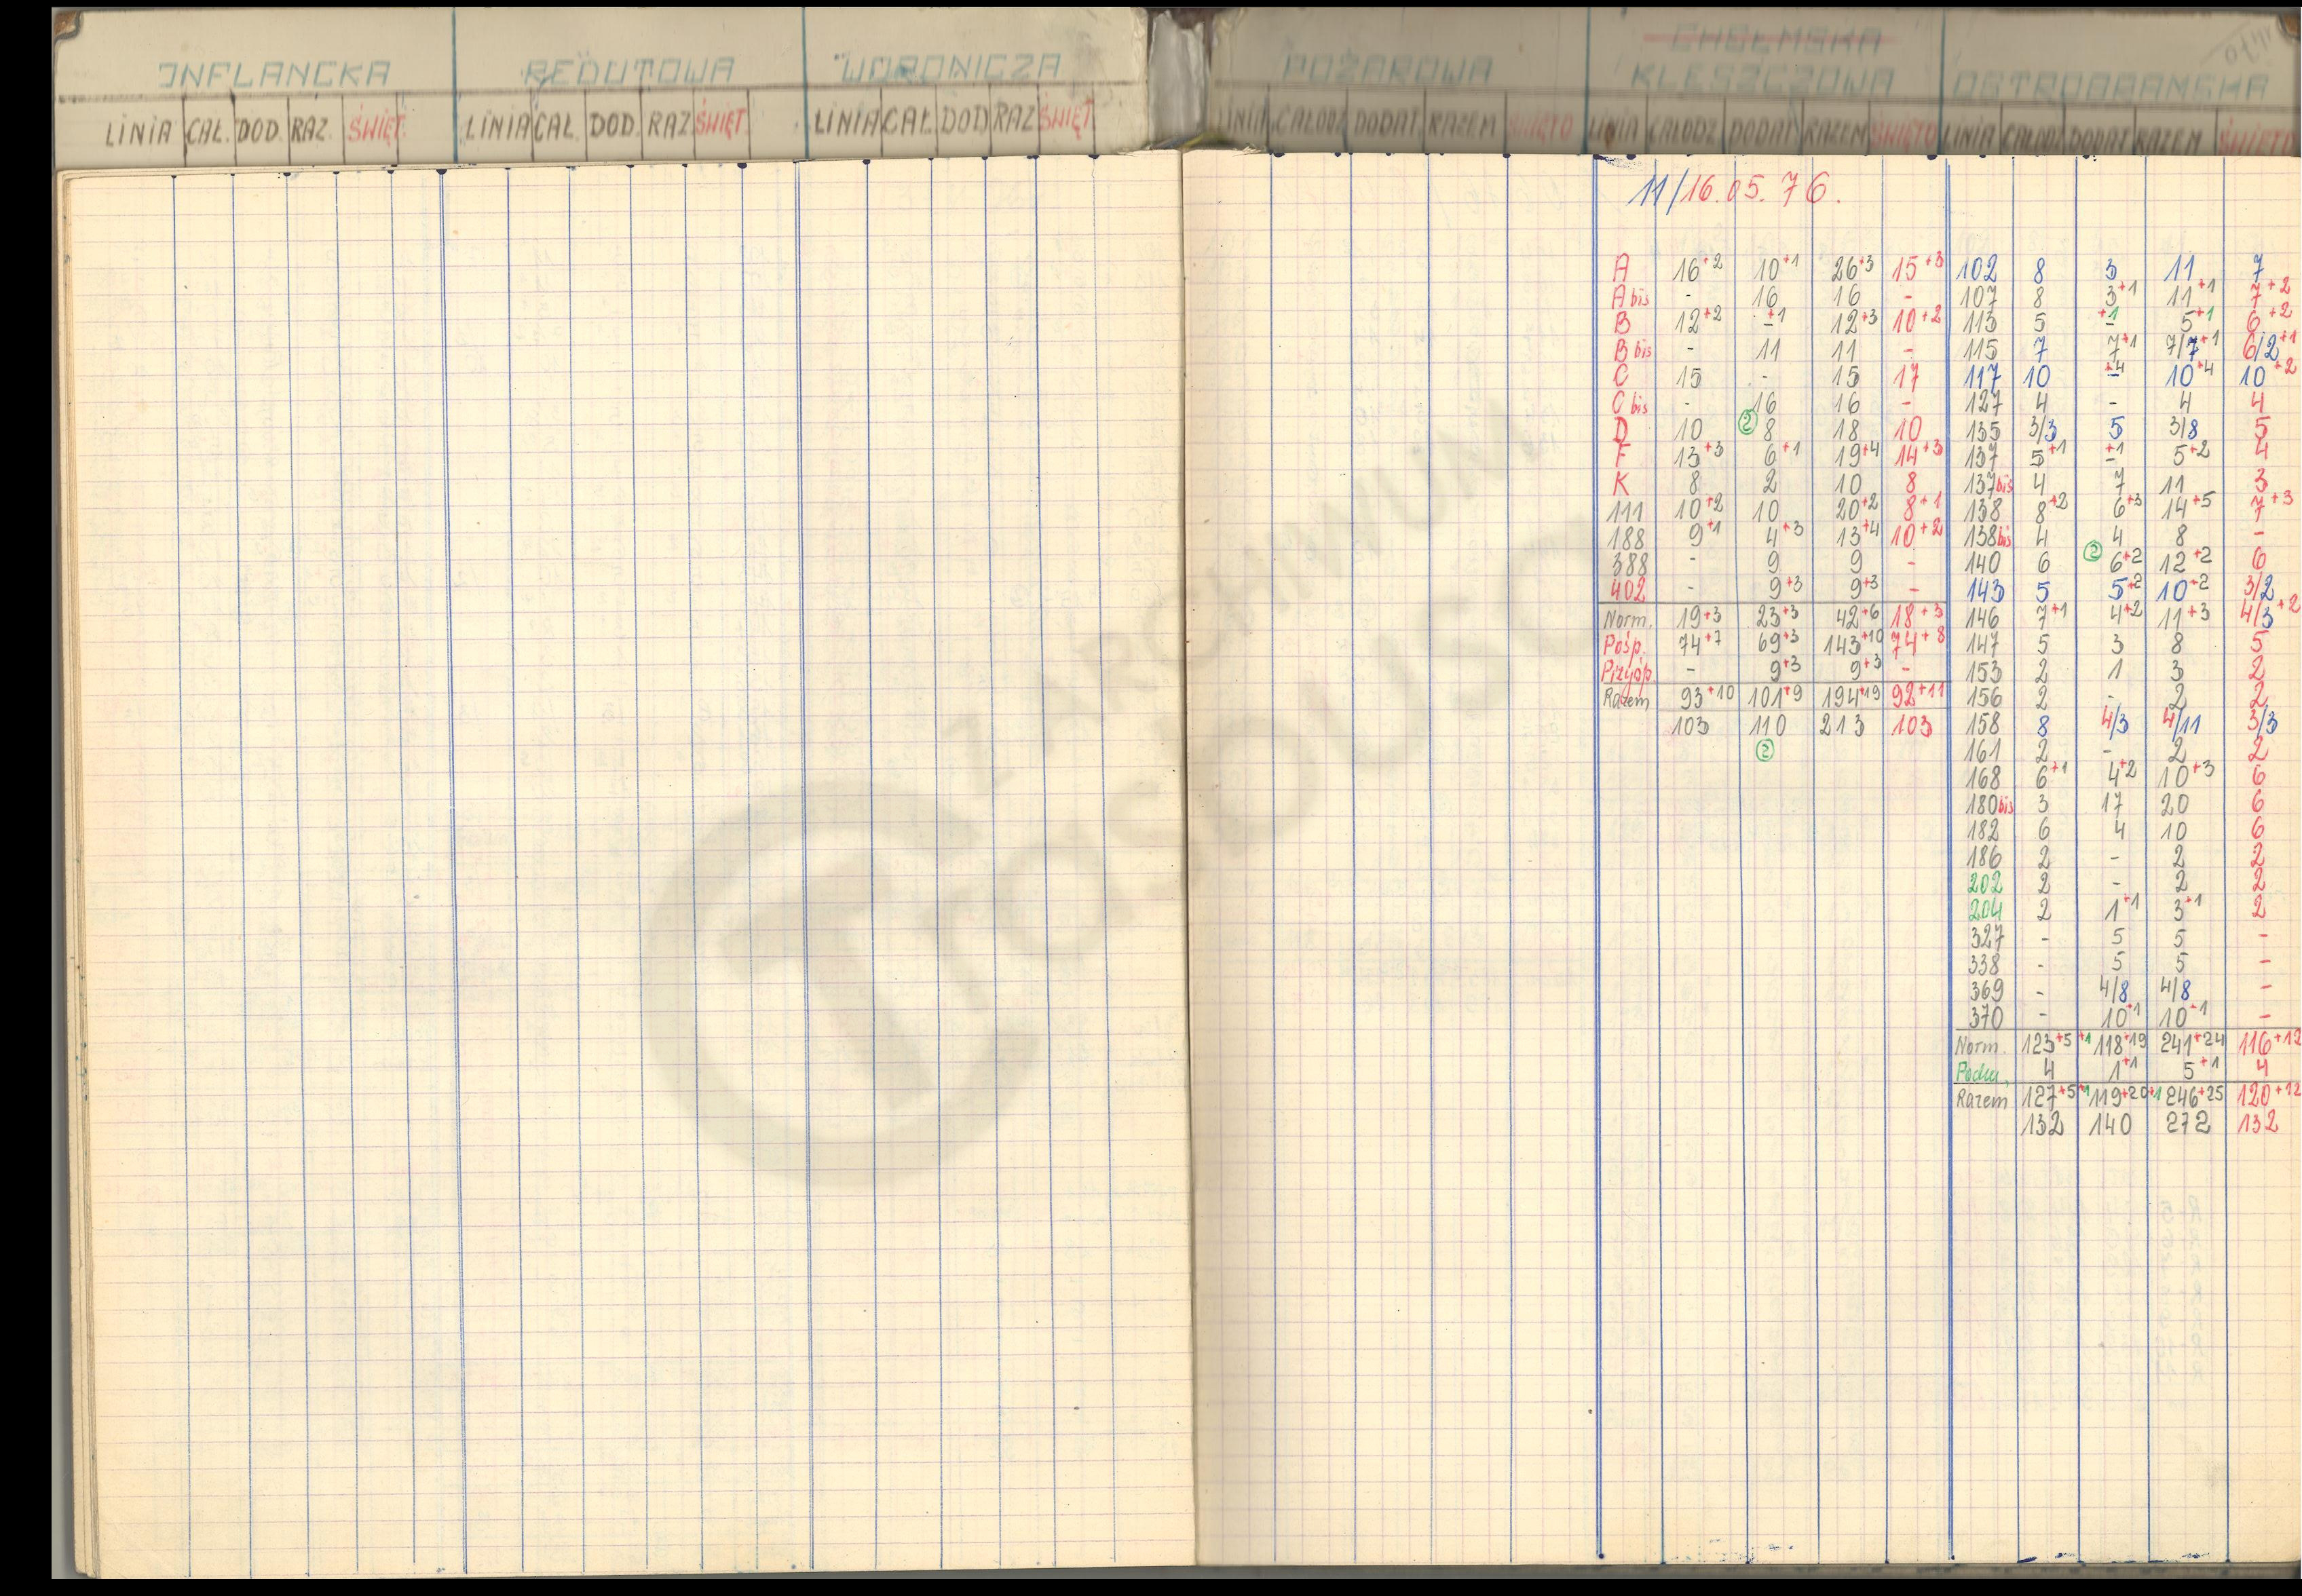 INFLANCKA REDUTOWA WORONICZA POŻAROWA CHEŁMSKA
KLESZCZOWA OSTROBRAMSKA
LINIA CAŁ. DOD. RAZ. ŚWIĘT. LINIA CAŁ. DOD. RAZ ŚWIĘT. LINIA CAŁ. DOD RAZ ŚWIĘT. LINIA CAŁODZ DODAT. RAZEM ŚWIĘTO LINIA CAŁODZ DODAT RAZEM ŚWIĘTO LINIA CAŁODZ DODAT RAZEM ŚWIĘTO
11/16.05.76.
A 16+2 10+1 26+3 15+3 102 8 3 11 7
A bis - 16 16 - 107 8 3+1 11+1 7+2
B 12+2 -+1 12+3 10+2 113 5 -+1 5+1 6+2
B bis - 11 11 - 115 7 7+1 7/7+1 6/2+1
C 15 - 15 17 117 10 -+4 10+4 10+2
C bis - 16 16 - 127 4 - 4 4
D 10 ② 8 18 10 135 3/3 5 3/8 5
F 13+3 6+1 19+4 14+3 137 5+1 -+1 5+2 4
K 8 2 10 8 137bis 4 7 11 3
111 10+2 10 20+2 8+1 138 8+2 6+3 14+5 7+3
188 9+1 4+3 13+4 10+2 138bis 4 4 8 -
388 - 9 9 - 140 6 ② 6+2 12+2 6
402 - 9+3 9+3 - 143 5 5+2 10+2 3/2
Norm. 19+3 23+3 42+6 18+3 146 7+1 4+2 11+3 4/3+2
Pośp. 74+7 69+3 143+10 74+8 147 5 3 8 5
Przyśp. - 9+3 9+3 - 153 2 1 3 2
Razem 93+10 101+9 194+19 92+11 156 2 - 2 2
103 110 213 103 158 8 4/3 4/11 3/3
② 161 2 - 2 2
168 6+1 4+2 10+3 6
180bis 3 17 20 6
182 6 4 10 6
186 2 - 2 2
202 2 - 2 2
204 2 1+1 3+1 2
327 - 5 5 -
338 - 5 5 -
369 - 4/8 4/8 -
370 - 10+1 10+1 -
Norm. 123+5 +1 118+19 241+24 116+12
Podm. 4 1+1 5+1 4
Razem 127+5 +1 119+20 +1 246+25 120+12
132 140 272 132